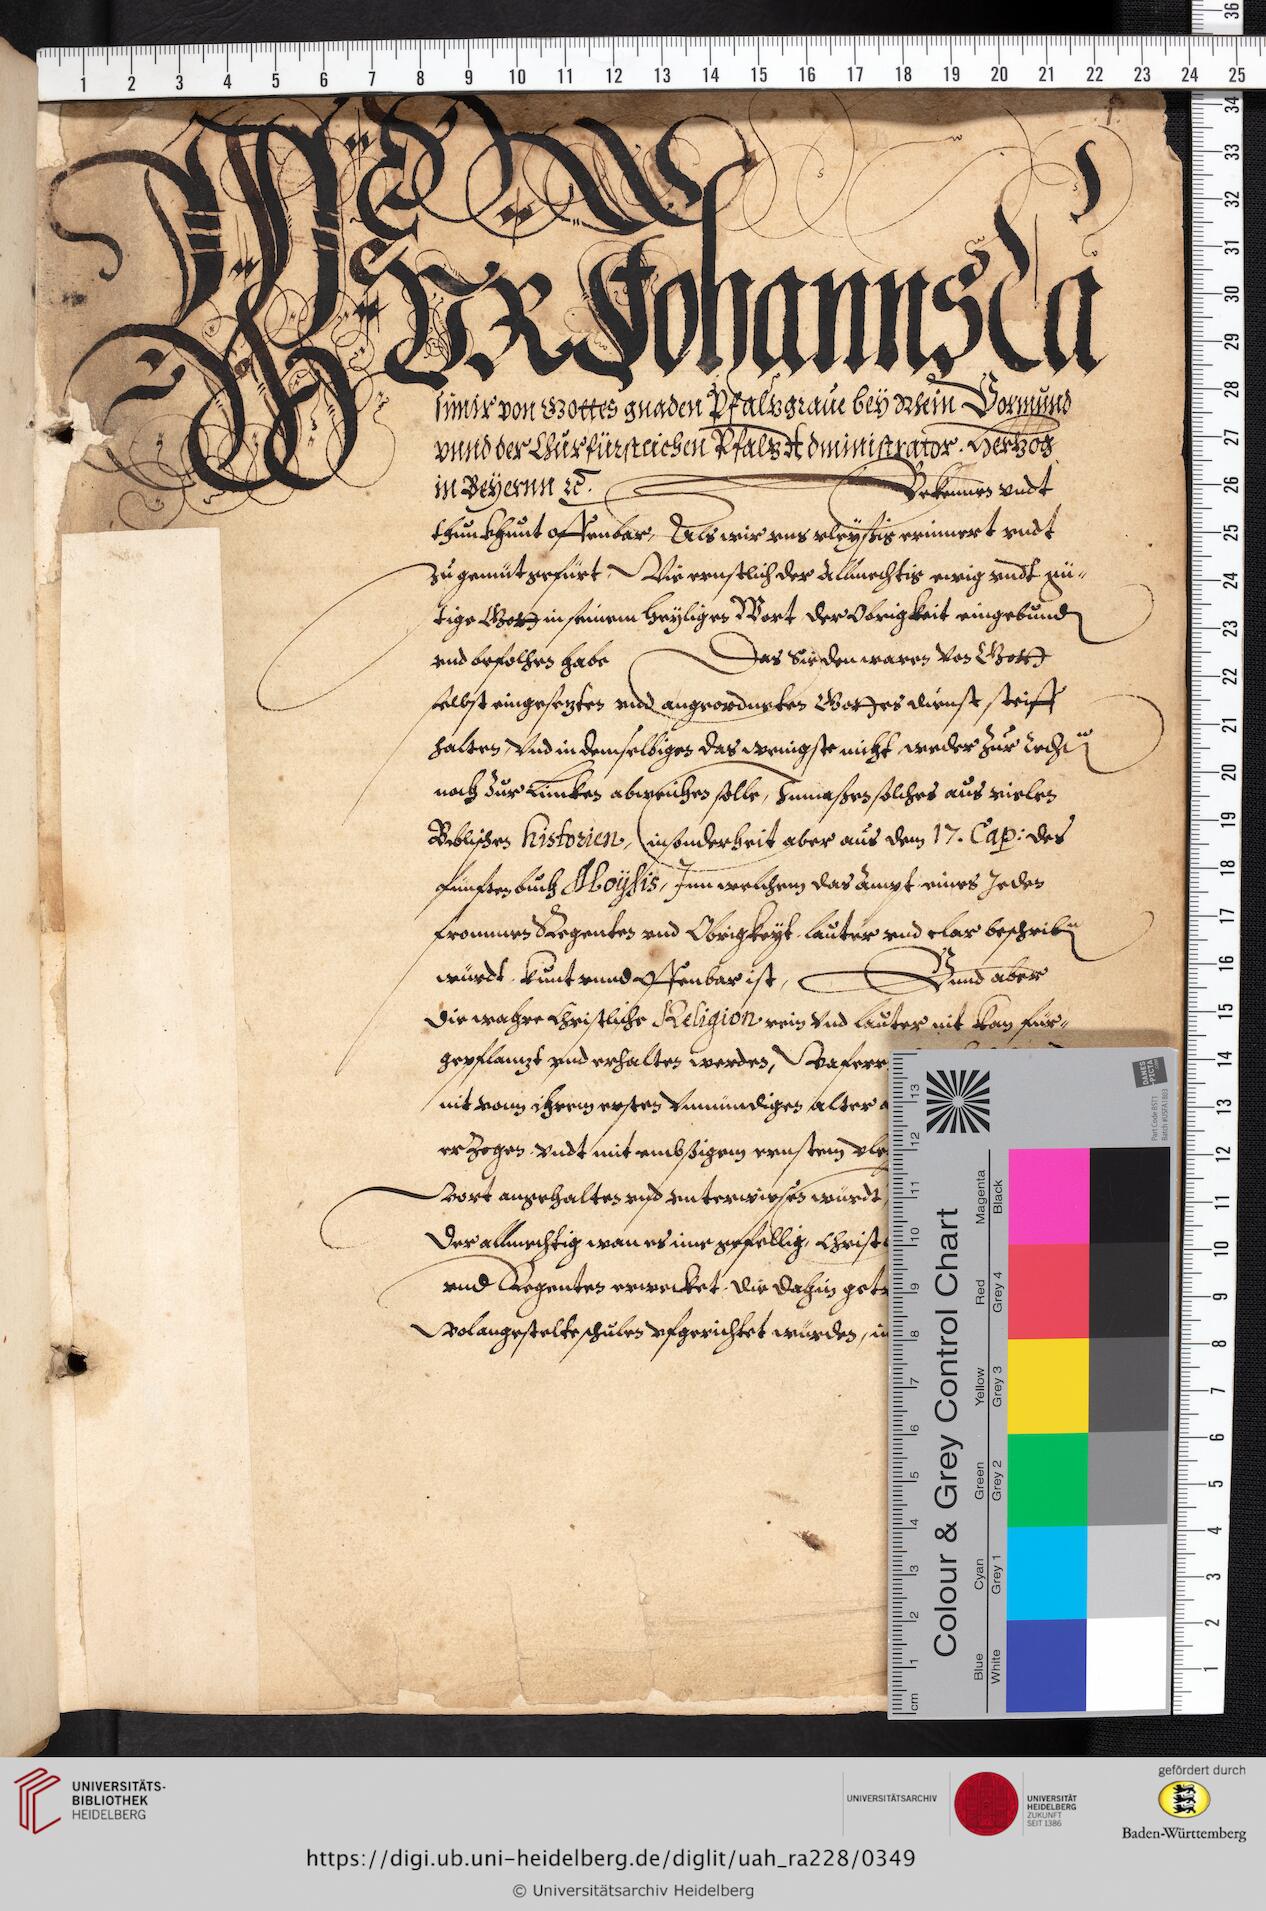 WIR Johanns Ca
simir von Gottes gnaden Pfaltzgraue bey Rhein Vormund
vnnd der Churfürstlichen Pfaltz Administrator. Hertzog
in Beyernn ꝛc. Bekennen vndt
thun khunt offenbar, Als wir vns vleyssig erinnert vndt
zu gemüt gefürt, Wie ernstlich der Allmechtig ewig vndt gü-
tige Gott in seinem heyligen Wort der Obrigkeit eingebunden
vnd befolhen habe Das Sie den waren von Gott
selbst eingesetzten vnd angeordneten Gottes dienst, steiff
halten, Vnd in demselbigen das wenigste nicht weder Zur rechten
noch Zur Lincken abweichen solle, Inmassen solches aus vielen
Biblischen historien, insonderheit aber aus dem 17. Cap: des
fünften buch Moysis, Inn welchem das Ampt eines Jeden
frommen Regenten vnd Obrigkeyt lauter vnd clar beschriben
würdt. kunt vnnd offenbar ist, Vnnd aber
die wahre Christliche Religion rein vnd lauter nit kan für-
gepflantzt vnd erhalten werden, Wa
nit vonn ihrem ersten Vnmündigen alter
erzogen vndt mit embsigem ernstem
Wort angehalten vnd vnterwiesen würdt,
Der allmechtig wan es ime gefellig,
vnd Regenten erwecket. die dahin
Wolangestelte schulen vfgerichtet würden,
1 2 3 4 5 6 7 8 9 10 11 12 13 14 15 16 17 18 19 20 21 22 23 24 25
36
34
33
32
31
30
29
28
27
26
25
24
23
22
21
20
19
18
17
16
15
14
13
12
11
10
9
8
7
6
5
4
3
2
1
Colour & Grey Control Chart
Blue Cyan Green Yellow Red Magenta
White Grey 1 Grey 2 Grey 3 Grey 4 Black
cm 1 2 3 4 5 6 7 8 9 10 11 12 13
DANES
PICTA
.COM
Part Code BST1
UNIVERSITÄTS-
BIBLIOTHEK
HEIDELBERG
UNIVERSITÄTSARCHIV
UNIVERSITÄT
HEIDELBERG
ZUKUNFT
SEIT 1386
gefördert durch
Baden-Württemberg
https://digi.ub.uni-heidelberg.de/diglit/uah_ra228/0349
© Universitätsarchiv Heidelberg